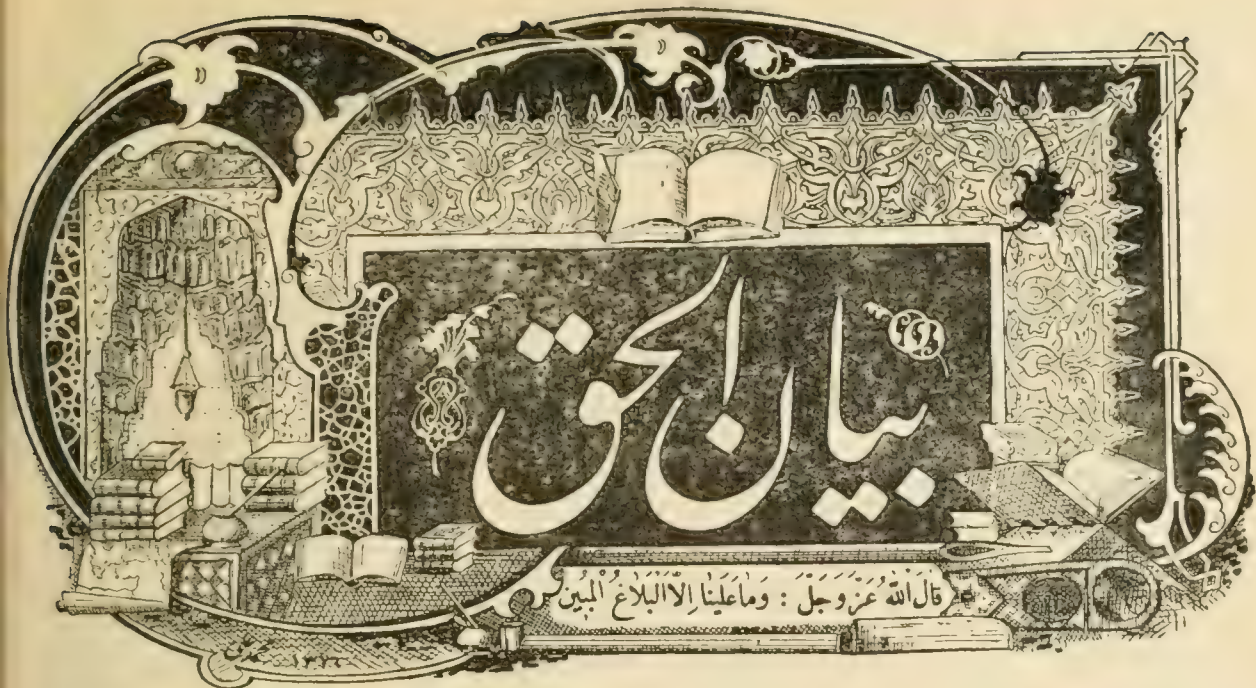 بيان الحق
قَالَ اللّٰهُ عَزَّ وَجَلَّ : وَمَا عَلَيْنَا اِلَّا الْبَلَاغُ الْمُبِينُ
١٣٢٦